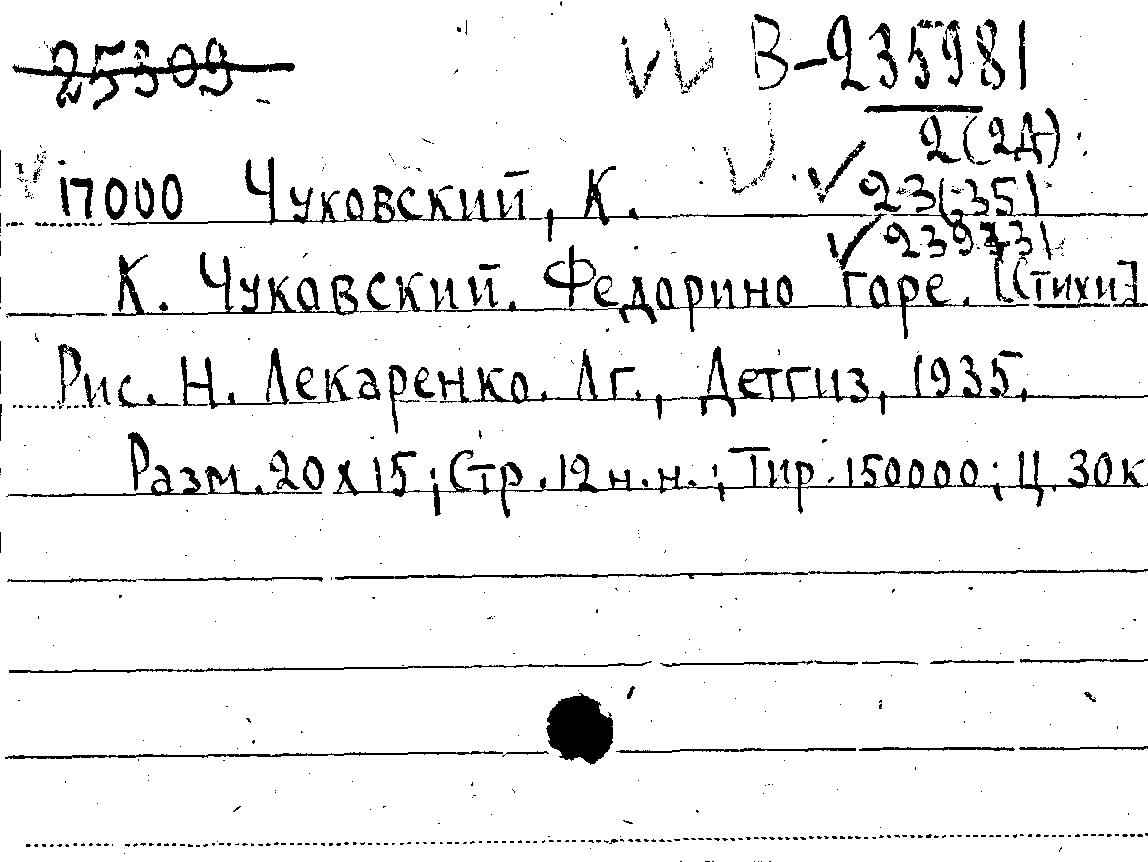 25309 В-235981
2(2д)
17000 Чуковский, К.
К. Чуковский. Федорино горе. [Стихи]
Рис. Н. Лекаренко. Лг., Детгиз, 1935.
Разм. 20х15; Стр. 12 н.н.; Тир. 150000; Ц. 30к